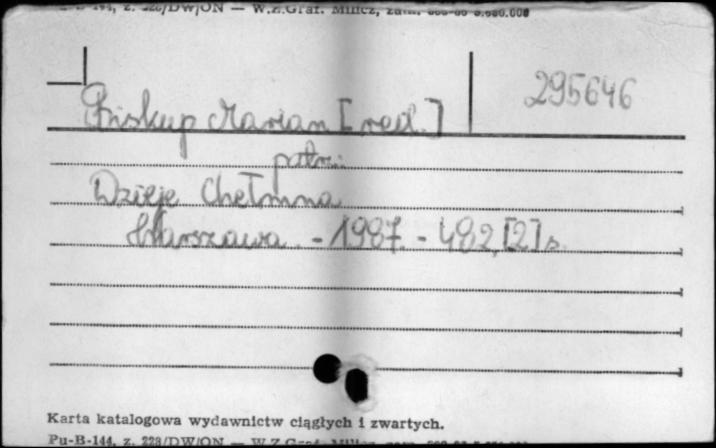 295646
Biskup Marian [red.]
patrz:
Dzieje Chełmna
Warszawa - 1987 - 482, [2] s.
Karta katalogowa wydawnictw ciągłych i zwartych.
Pu-B-144, z. 228/DW/ON — W.Z.Graf.